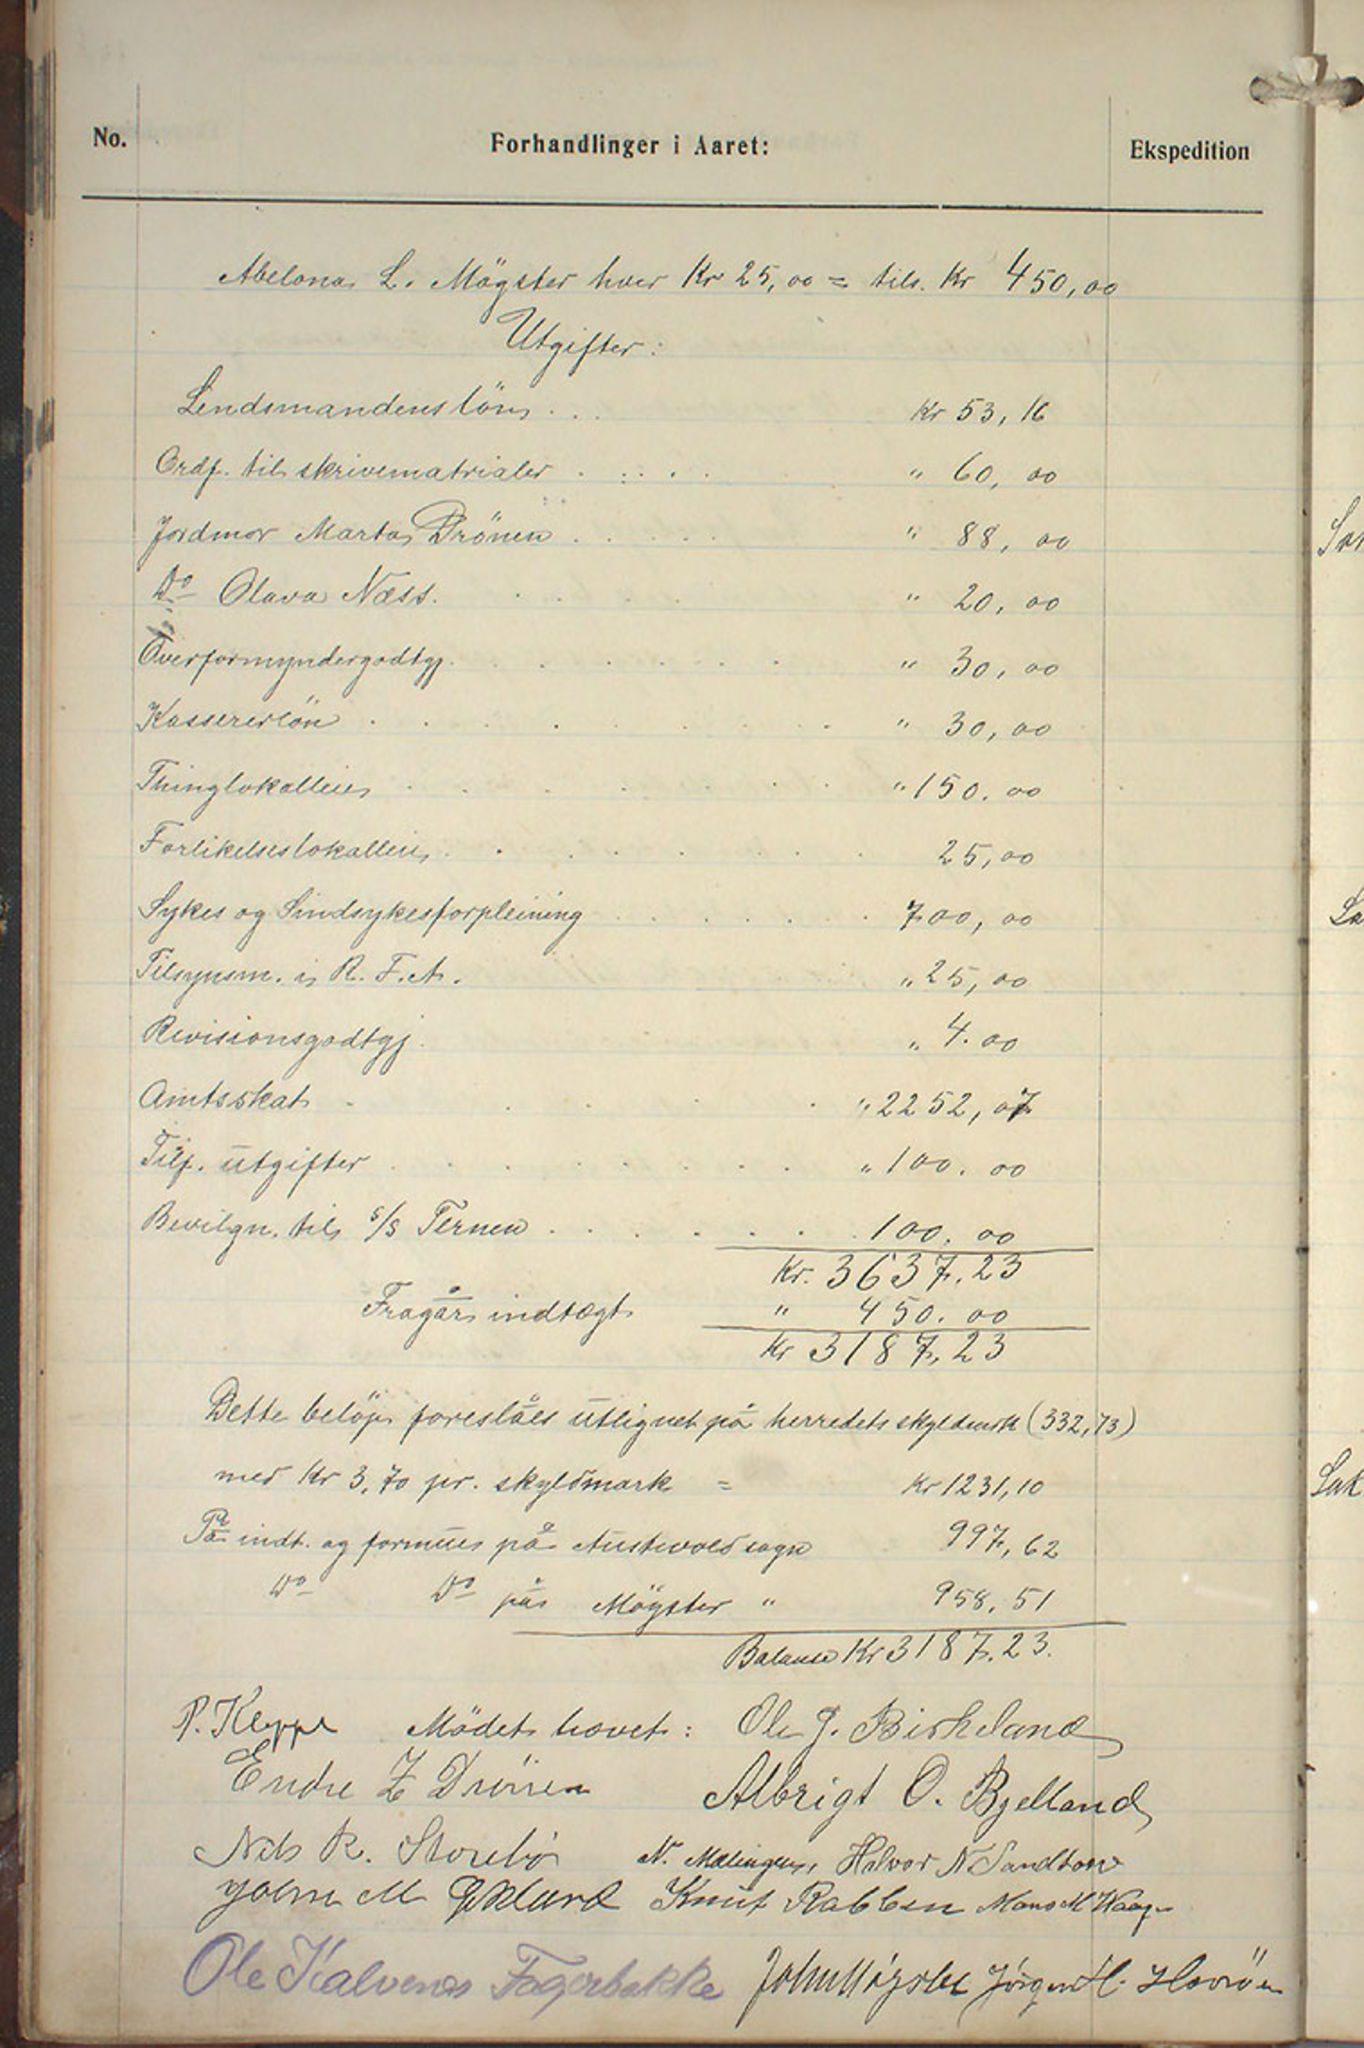 No.
Forhandlinger i Aaret:
Ekspedition
Abelona L. Mögster hver Kr 25,00 = tils. Kr 450,00
Utgifter:
Lendsmandens lön . . . Kr 53,16
Ordf. til skrivematrialer . . . . . " 60,00
Jordmor Marta Drönen . . . . . " 88,00
Do Olava Næss. . . . . " 20,00
Overformyndergodtgj. . . . . . . " 30,00
Kassererlön . . . . . . . . " 30,00
Thinglokalleie . . . . . . . " 150.00
Forlikelseslokalleie . . . . . . . 25,00
Sykes og Sindsykesforpleining . . . . . . 700,00
Tilsynsm. i R. F. A. " 25,00
Revisionsgodtgj. " 4.00
Amtsskat . . . . . " 2252,07
Tilf. utgifter . . . . . . . . " 100.00
Bevilgn. til s/s Ternen . . . . . . 100.00
Kr. 3637.23
Fragår indtægt " 450.00
Kr 3187,23
Dette belöp foreslåes utlignet på herredets skyldmrk (332,73)
med Kr 3,70 pr. skyldmark = Kr 1231,10
På indt. og formue på Austevold sogn 997,62
Do Do på Mögster " 958,51
Balanse Kr 3187.23.
P. Kleppe Mödet hævet: Ole J. Birkeland
Endre Z Drönen Albrigt O. Bjelland
Nils R. Storebö N. Mælingen, Halvor N Sandtorv
John M Eklund Knut Rabben Mons M Waage
Ole Kalvenes Fagerbakke John Møgster Jørgen H. Horröen